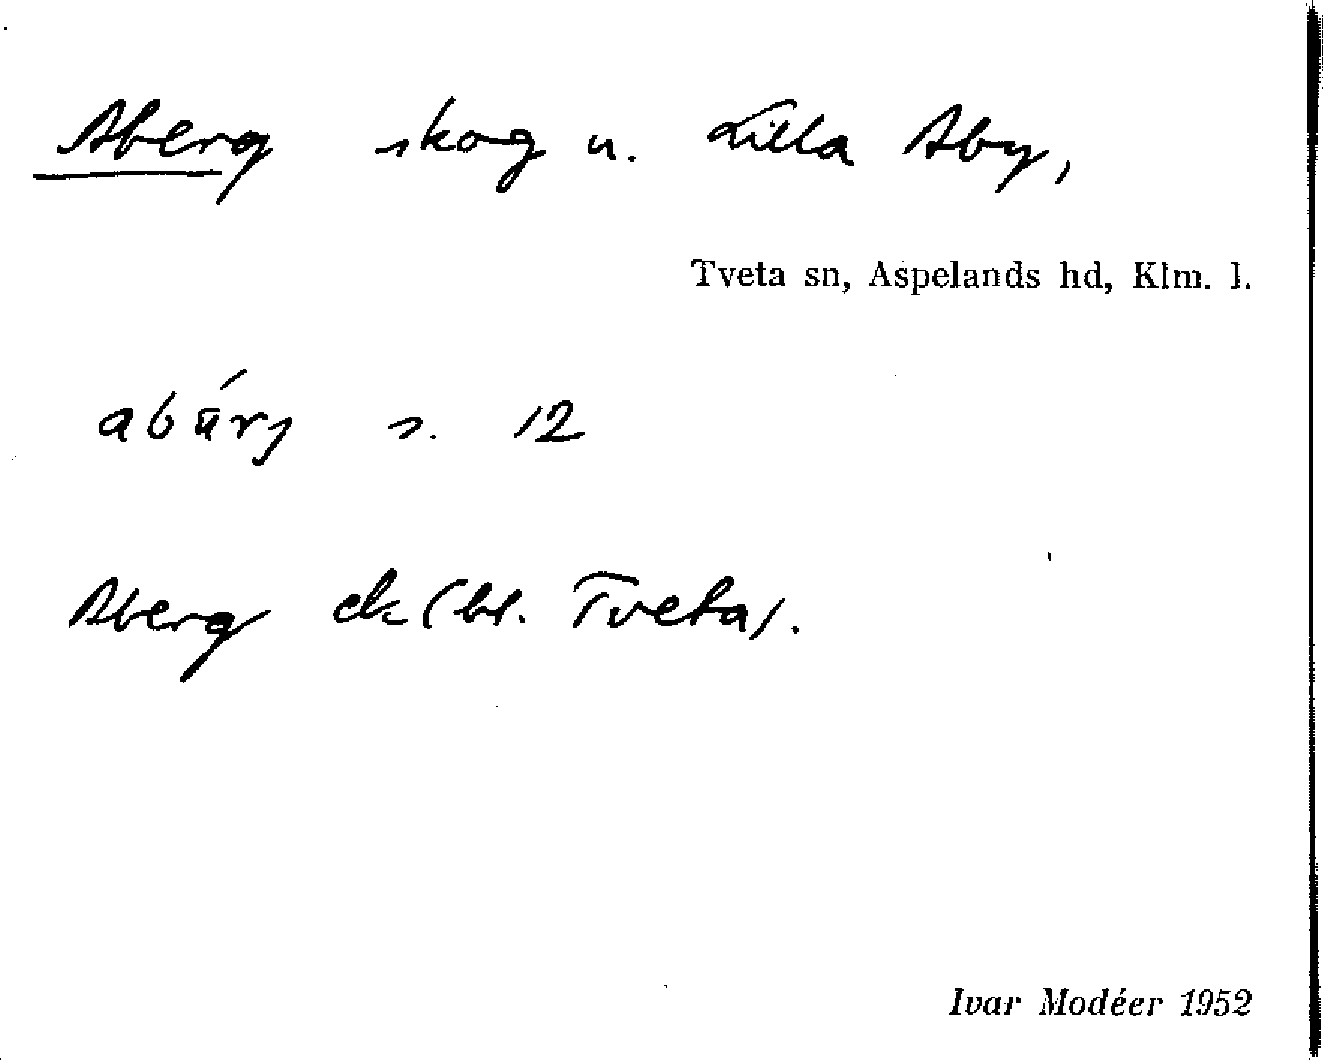 Aberg skog u. Lilla Aby,
Tveta sn, Aspelands hd, Klm. l.
s. 12
Aberg ek (bl. Tveta).
Ivar Modéer 1952